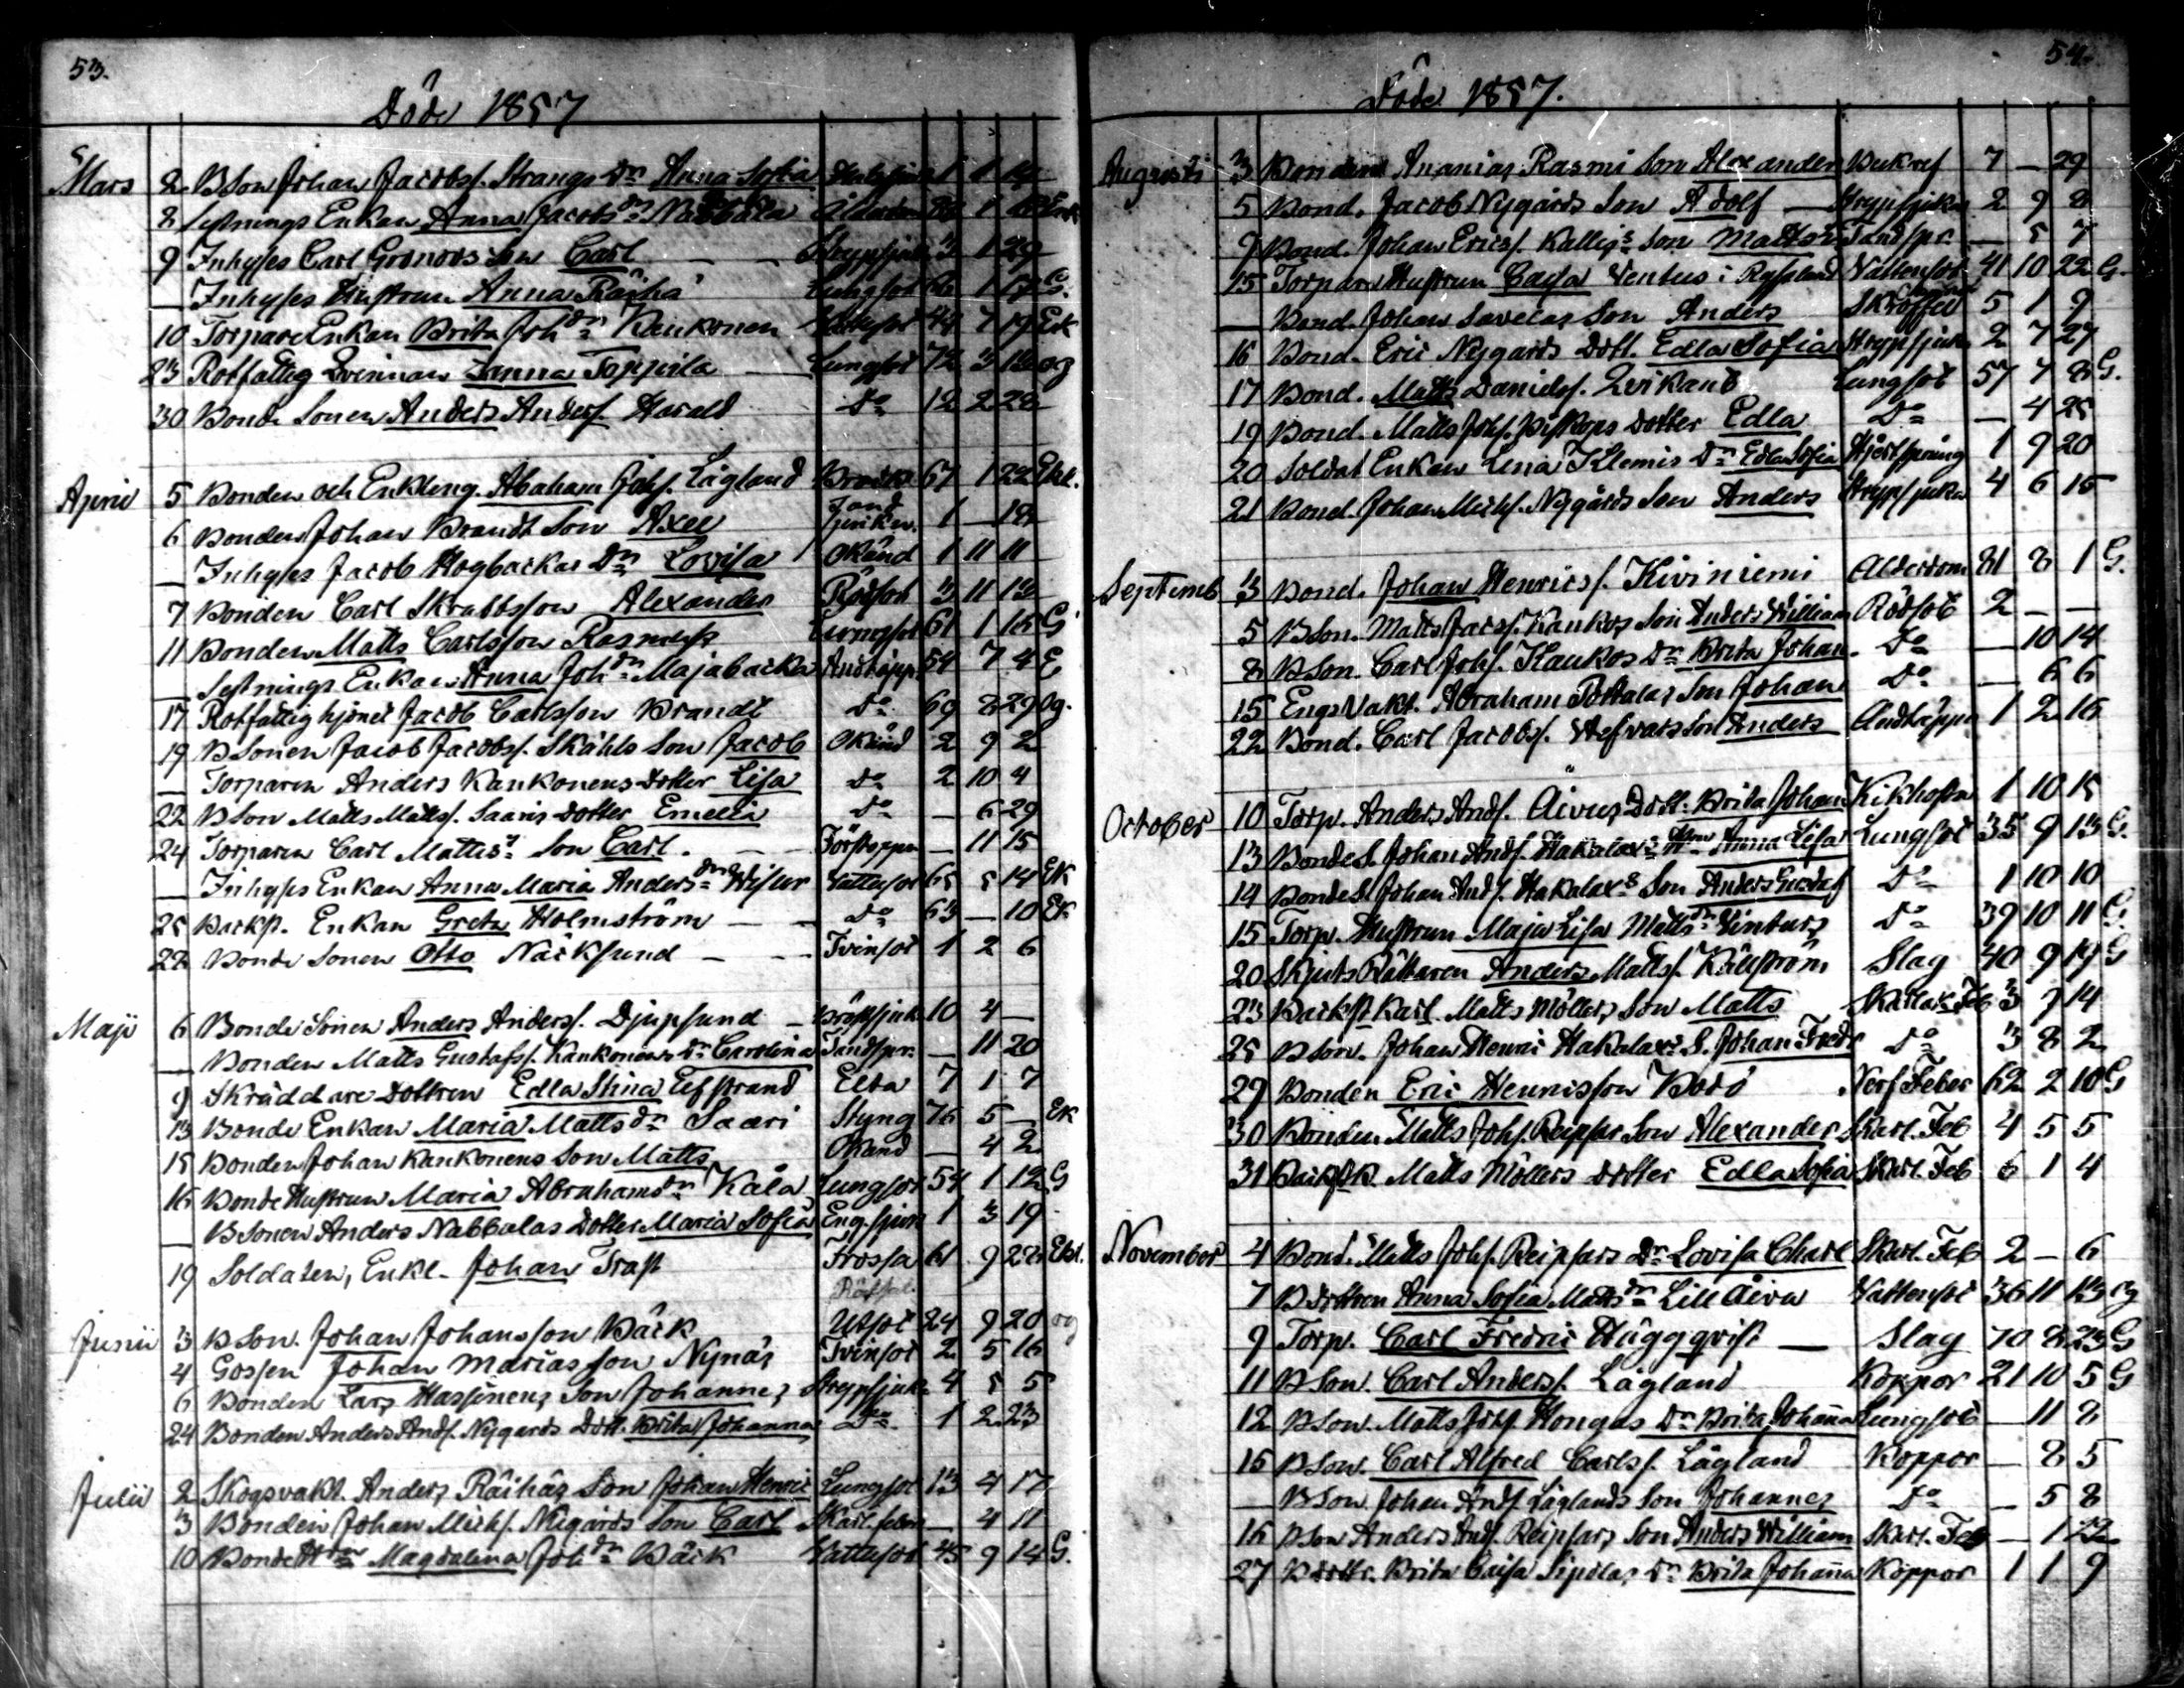 53.
Döde 1857
Mars 2 BSon Johan Jacobss. Strangs Dr Anna Sofia 1 1
8 Sytnings Enkan Anna Jacobsdr Nabbala Ålderdom 1 Enk
9 Inhyses Carl Gronors Son Carl — — Strypsjuk 3 1 29
— Inhyses Hustrun Anna Räihä Lungsot 1 G.
10 Torpare Enkan Brita Johdr Kankonen 44 7 19 Ek
23 Rotfattig Qvinnan Sanna Toppila — Lungsot 72 3 og
30 Bonde Sonen Anders Anderss. Harald Do 12 2 28
April 5 Bonden och Enkling. Abraham Johss. Lågland 67 1 22 Ekl.
6 Bonden Johan Brandt Son Axel Tand sjukn. 1 — 18
— Inhyses Jacob Hogbackas Dr Lovisa Okänd 1 11 11
7 Bonden Carl Skrabbsson Alexander Rödsot 3 11 13
11 Bonden Matts Carlsson Lungsot 61 1 G
— Sytnings Enkan Anna Johdr Majabacka Andtäppa 54 7 4 E
17 Rotfattig hjonet Jacob Carlsson Brandt Do 69 8 29 og.
19 BSonen Jacob Jacobss. Skåhls Son Jacob Okänd 2 9 2
— Torparen Anders Kankonens dotter Lisa Do 2 10 4
22 BSon Matts Mattss. Saaris dotter Emelia Do — 6 29
24 Torparen Carl Matts Son Carl. Förstoppn — 11 15
— Inhyses Enkan Anna Maria Andersdr Vattusot 65 5 14 Ek
25 Backst. Enkan Greta Holmström — — Do 63 — 10 Ek
28 Bonde Sonen Otto Näcksund — — Tvinsot 1 2 6
Maji 6 Bonde Sonen Anders Anderss. Djupsund — Bröstsjuk 10 4 —
— Bonden Matts Gustafss. Kankonens Dr Carolina Tandspr. — 11 20
9 Skräddare Dottren Edla Stina Elfstrand Elta 7 1 7
13 Bonde Enkan Maria Mattsdr Saari Styng 76 5 — Ek
15 Bonden Johan Kankonens Son Matts Okänd — 4 2
16 Bonde Hustrun Maria Abrahamsdr Kåla Lungsot 54 1 12 G
— BSonen Anders Nabbalas Dotter Maria Sofia Eng. sjuk 1 3 19
19 Soldaten, Enkl. Johan Trast Frossa 61 9 22 Ekl.
Junii 3 BSon. Johan Johansson Bäck Utsot 24 9 20 og
4 Gossen Johan Mariasson Nynäs Tvinsot 2 5 16
6 Bonden Lars Hassinens Son Johannes Strypsjuk 4 5 5
24 Bonden Anders Ands. Nygards Dott. Brita Johanna Do 1 2 23
Julii 2 Skogsvakt. Anders Räihäs Son Johan Henric Lungsot 13 4 17
3 Bonden Johan Michs. Nygårds Son Carl Skarl. feber — 4 11
10 Bonde Hustrun Magdalena Johdr Bäck Vattusot 45 9 14 G.
54.
Döde 1857.
Augusti 3 Bonden Ananias Rasmi Son Alexander 7 — 29
5 Bond. Jacob Nygårds Son Adolf — Strypsjukn 2 9 8
9 Bond. Johan Ericss. Kallis Son Matts Tandspr. — 5 7
15 Torpare Hustrun Caisa Ventus i Ryssland Vattensot 41 10 22 G.
— Bond. Johan Savelas Son Anders Skroffel 5 1 9
16 Bond. Eric Nygards Dott. Edla Sofia Strypsjukn 2 7 27
17 Bond. Matts Danielss. Qvikant Lungsot 57 7 8 G.
19 Bond. Matts Johss. Biskops dotter Edla Do — 4 25
20 Soldat Enkan Lena Klemis Dr Edla Sofia Hjertspång 1 9 20
21 Bond. Johan Michs. Nygårds Son Anders Strypsjukn 4 6 15
Septemb 3 Bond. Johan Henricss. Kiviniemi Alderdom 81 8 1 G.
5 BSon. Matts Jacss. Kankos Son Anders William Rödsot 2 — —
8 BSon. Carl Johs. Kaukos Dr Brita Johan. Do — 10 14
15 Engs Vakt. Abraham Pottalas Son Johan Do — 6 6
22 Bond. Carl Jacobss. Son Anders Andtäppa 1 2 16
October 10 Torp. Anders Ands. Åivus Dott. Brita Johan Kikhosta 1 10 15
13 Bonde S. Johan Ands. Hakalaxs Hun Anna Lisa Lungsot 35 9 13 G.
14 Bonde S. Johan Ands. Hakalaxs Son Anders Gustaf Do 1 10 10
15 Torp. Hustrun Maja Lisa Mattsdr Vinturs Do 39 10 11 G.
20 Skjuts Rättaren Anders Mattss. Källström Slag 40 9 19 G
23 Backst. Karl Matts Möllers Son Matts Skarlak. Feb 3 9 14
25 BSon. Johan Henric Hakalaxs S. Johan Fredr Do 3 8 2
29 Bonden Eric Hennisson Bodö Nerf Feber 62 2 10 G
30 Bonden Matts Johs. Reipars Son Alexander Skarl. Feb 4 5 5
31 Backst.K. Matts Möllers dotter Edla Sofia Skarl. Feb 6 1 4
November 4 Bond. Matts Johs. Reipsars Dr Lovisa Charl Skarl. Feb 2 — 6
7 BDottren Anna Sofia Mattsdr Lill Åiva Vattensot 36 11 13 og
9 Torp. Carl Fredric Häggqvist — Slag 70 8 23 G
11 BSon. Carl Anderss. Lågland Koppor 21 10 5 G
12 BSon. Matts Johs. Hongas Dr Brita Johaña Lungsot — 11 8
15 BSon. Carl Alfred Carlss. Lågland Koppor — 8 5
— BSon Johan Ands. Låglands Son Johannes Do — 5 8
16 BSon Anders Ands. Reipsars Son Anders William Skarl. Feb — 1 22
27 BDottr. Brita Caisa Sipolas Dr Brita Johaña Koppor 1 1 9